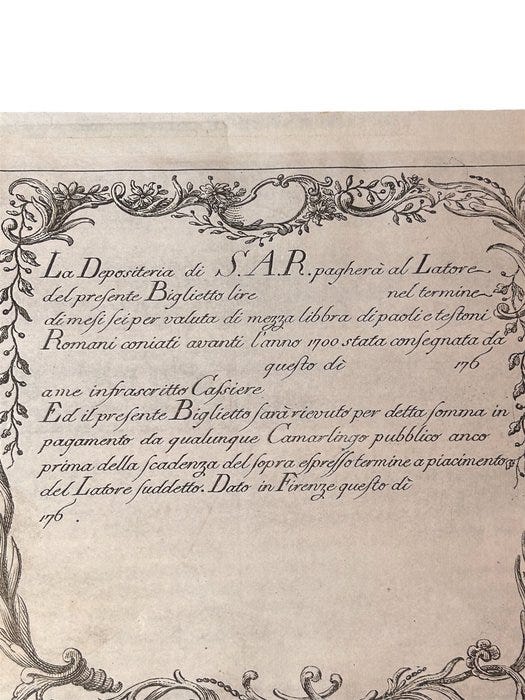 La Depositeria di S. A. R. pagherà al Latore
del preſente Biglietto lire nel termine
di meſi ſei per valuta di mezza libbra di paoli e teſtoni
Romani coniati avanti l'anno 1700 stata conſegnata da
queſto dì 176
a me infraſcritto Caſsiere
Ed il preſente Biglietto ſarà rievuto per detta ſomma in
pagamento da qualunque Camarlingo pubblico anco
prima della ſcadenza del ſopra eſpreſſo termine a piacimento
del Latore ſuddetto. Dato in Firenze queſto dì
176 .